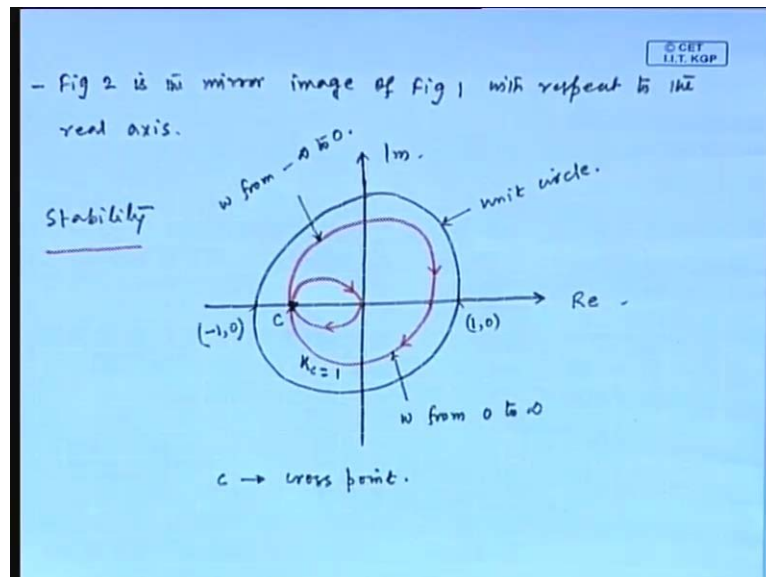 © CET
I.I.T. KGP
- Fig 2 is the mirror image of Fig 1 with respect to the
real axis.
ω from -∞ to 0.
Im.
unit circle.
Stability
Re.
(-1,0)
C
(1,0)
Kc = 1
ω from 0 to ∞
C → cross point.